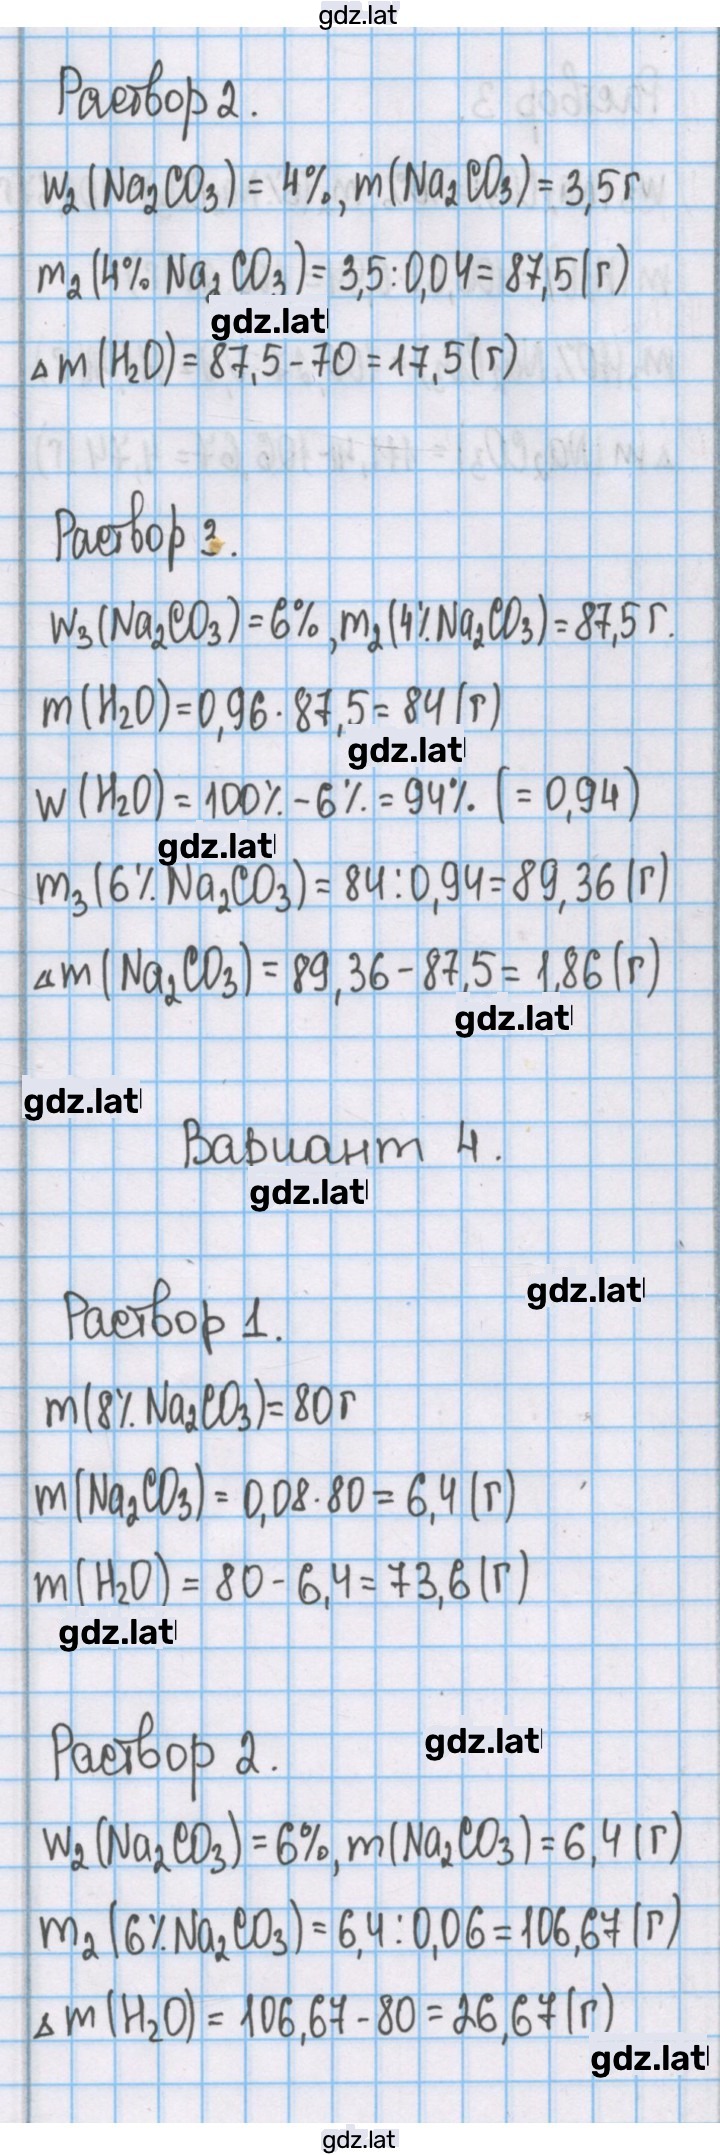 gdz.lat
Раствор 2.
w₂(Na₂CO₃) = 4%, m(Na₂CO₃) = 3,5 г
m₂(4% Na₂CO₃) = 3,5 : 0,04 = 87,5 (г)
gdz.lat
Δm(H₂O) = 87,5 - 70 = 17,5 (г)
Раствор 3.
w₃(Na₂CO₃) = 6%, m₂(4% Na₂CO₃) = 87,5 г.
m(H₂O) = 0,96 · 87,5 = 84 (г)
gdz.lat
w(H₂O) = 100% - 6% = 94%. (= 0,94)
gdz.lat
m₃(6% Na₂CO₃) = 84 : 0,94 = 89,36 (г)
Δm(Na₂CO₃) = 89,36 - 87,5 = 1,86 (г)
gdz.lat
gdz.lat
Вариант 4.
gdz.lat
gdz.lat
Раствор 1.
m(8% Na₂CO₃) = 80 г
m(Na₂CO₃) = 0,08 · 80 = 6,4 (г)
m(H₂O) = 80 - 6,4 = 73,6 (г)
gdz.lat
gdz.lat
Раствор 2.
w₂(Na₂CO₃) = 6%, m(Na₂CO₃) = 6,4 (г)
m₂(6% Na₂CO₃) = 6,4 : 0,06 = 106,67 (г)
Δm(H₂O) = 106,67 - 80 = 26,67 (г)
gdz.lat
gdz.lat